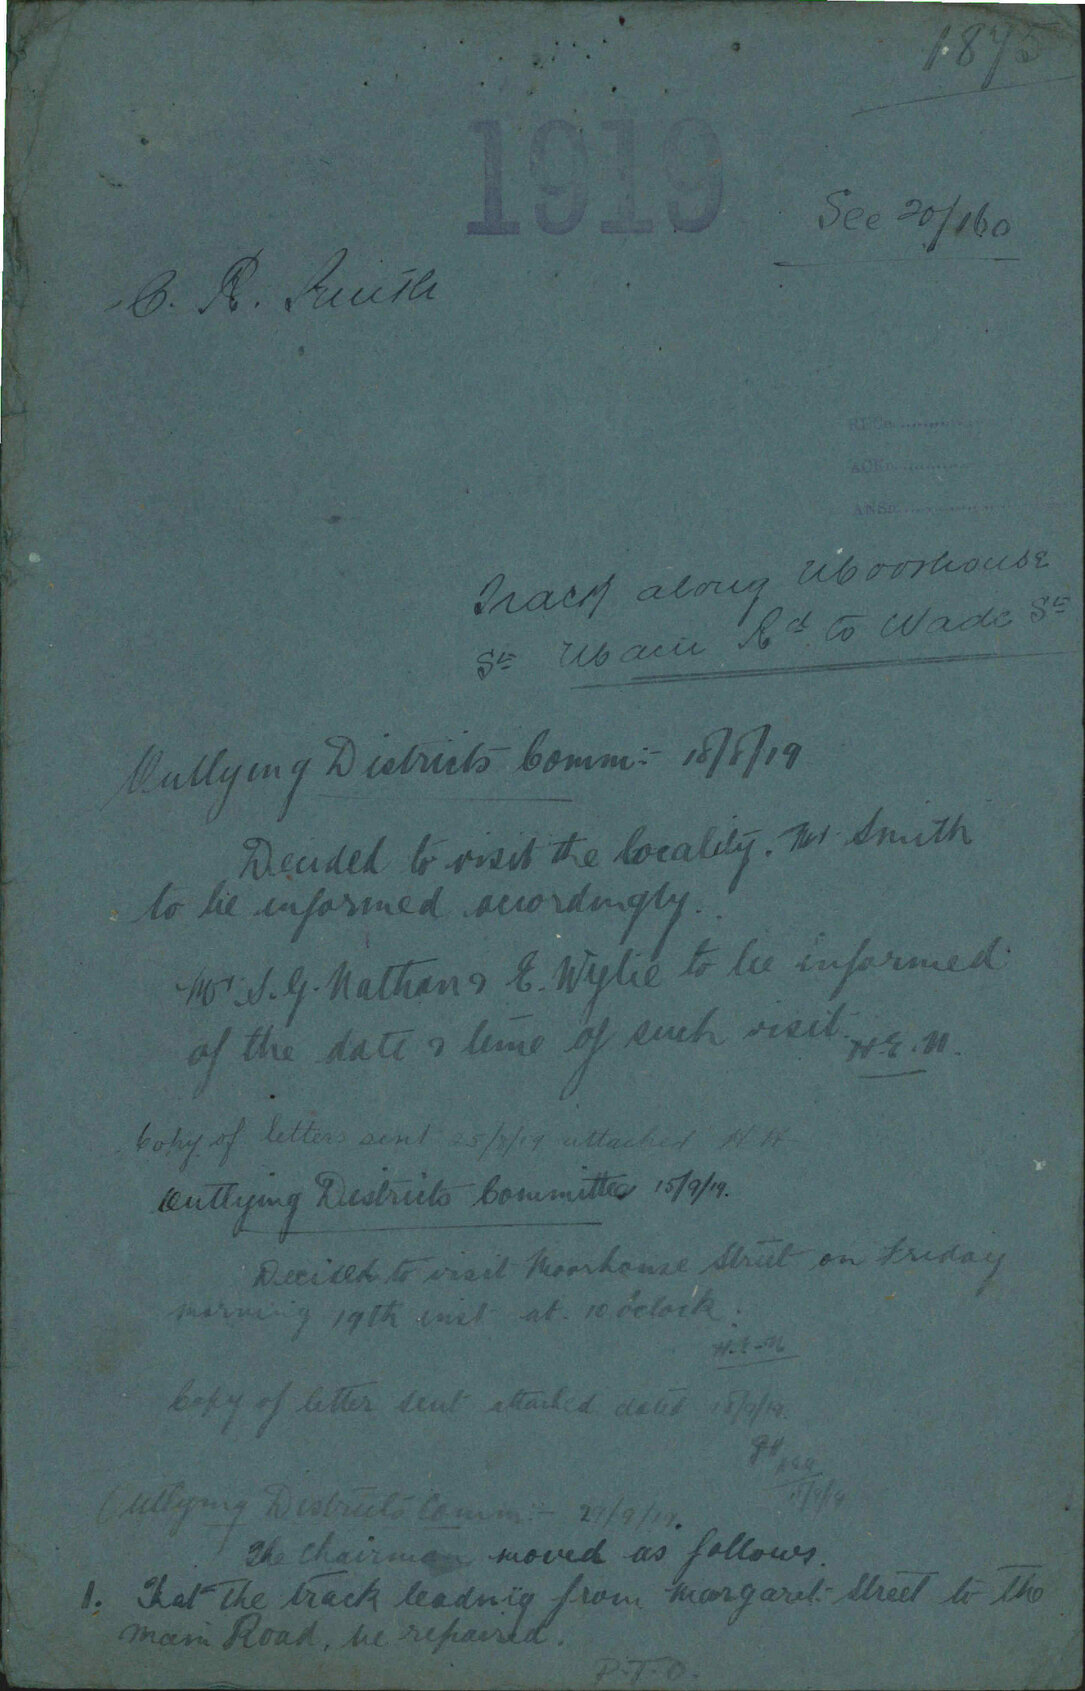 1875
1919
See 20/160
C. R. Smith
RECD
ACKD
ANSD
Track along Moorhouse
St Main Rd to Wade St
Outlying Districts Comm:- 18/8/19
Decided to visit the locality. Mr Smith
to be informed accordingly.
Mr S. G. Nathan & E. Wylie to be informed
of the date & time of such visit.
H.E.N.
Copy of letters sent 25/8/19 attached
Outlying Districts Committee 15/9/19.
Decided to visit Moorhouse Street on Friday
morning 19th inst at 10 o'clock.
Copy of letter sent attached dated
Outlying Districts Comm:-
The Chairman moved as follows.
1. That the track leading from Margaret Street to the
main Road, be repaired.
P.T.O.